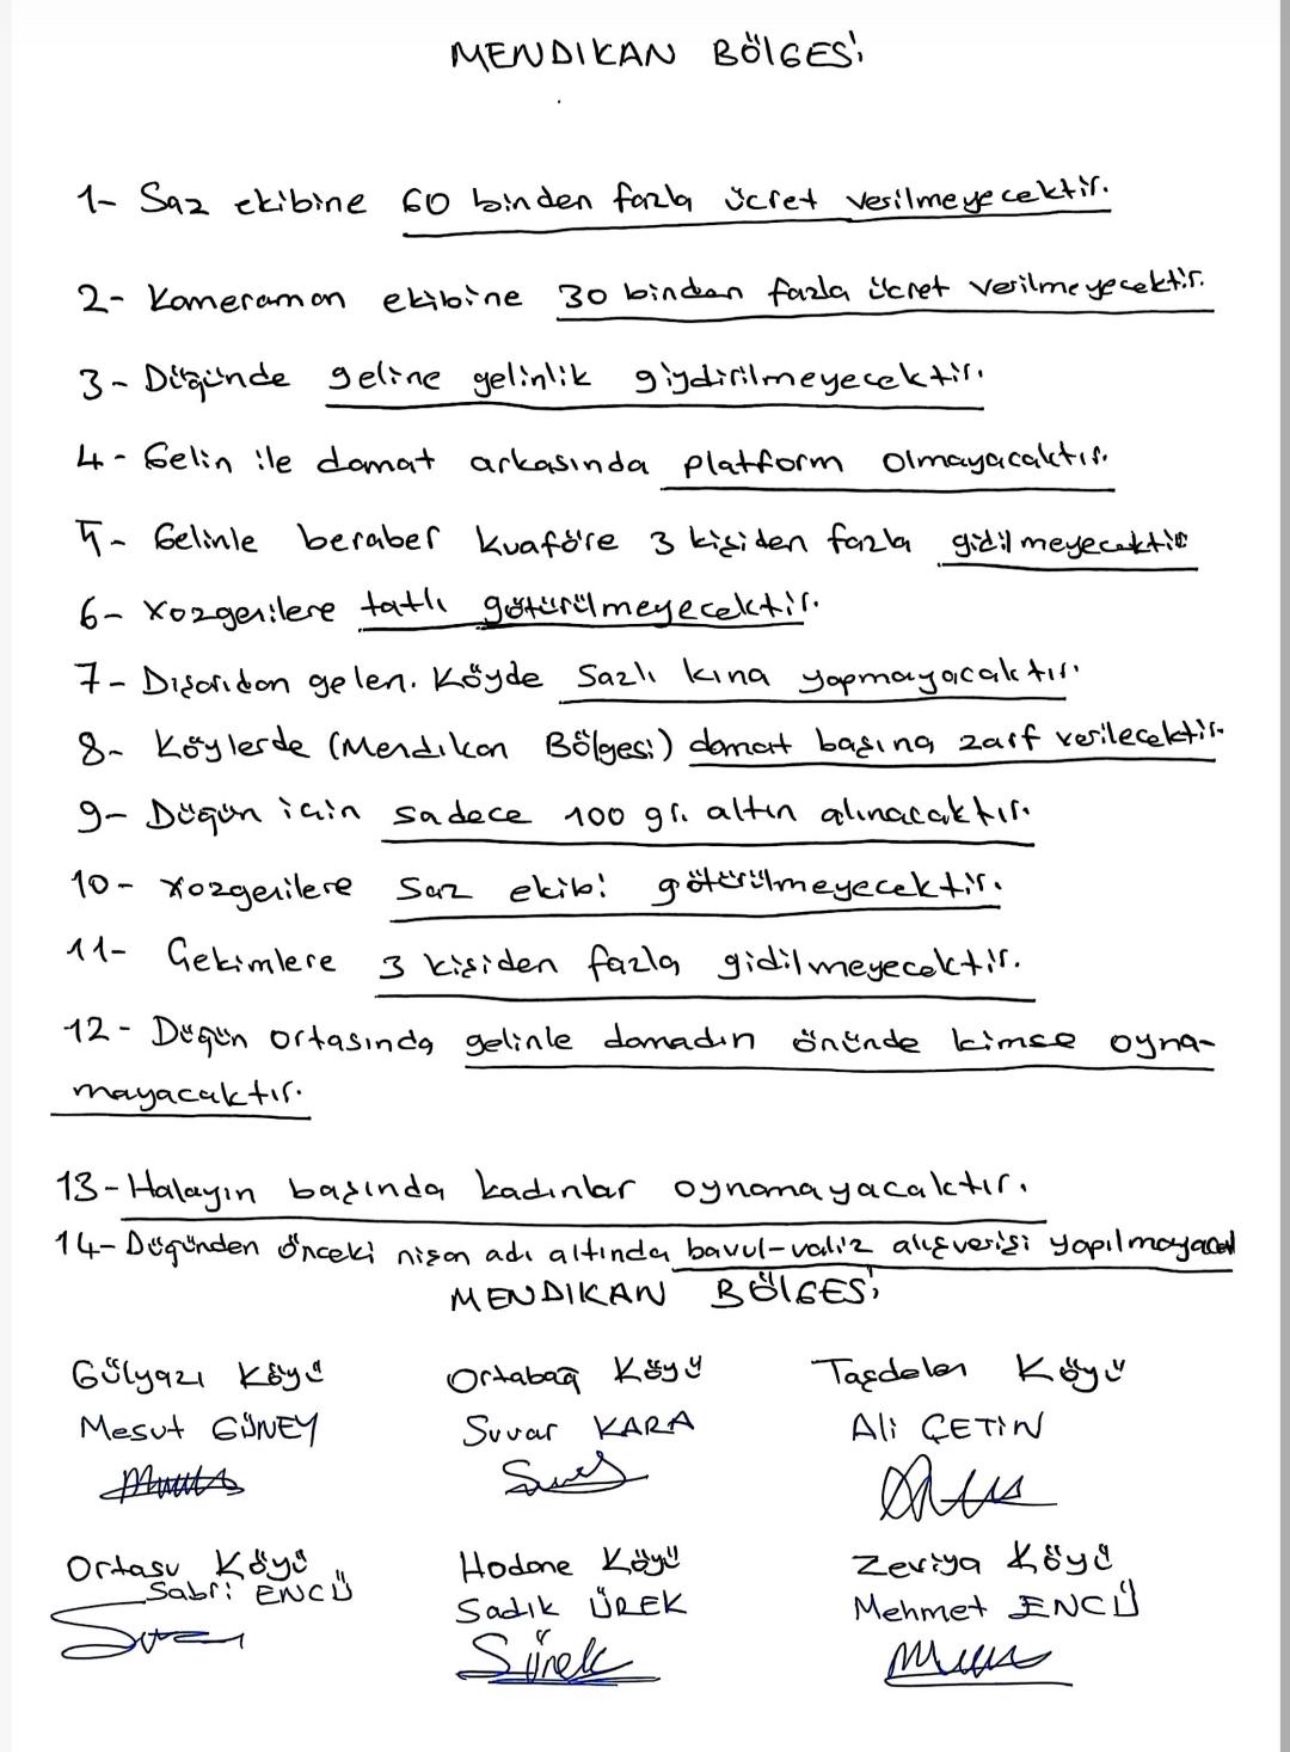 MENDIKAN BÖLGESİ
1- Saz ekibine 60 binden fazla ücret verilmeyecektir.
2- Kameraman ekibine 30 binden fazla ücret verilmeyecektir.
3- Düğünde geline gelinlik giydirilmeyecektir.
4- Gelin ile damat arkasında platform olmayacaktır.
5- Gelinle beraber kuaföre 3 kişiden fazla gidilmeyecektir
6- Xozgenilere tatlı götürülmeyecektir.
7- Dışarıdan gelen. Köyde sazlı kına yapmayacaktır.
8- Köylerde (Mendıkan Bölgesi) damat başına zarf verilecektir.
9- Düğün için sadece 100 gr. altın alınacaktır.
10- Xozgenilere saz ekibi götürülmeyecektir.
11- Çekimlere 3 kişiden fazla gidilmeyecektir.
12- Düğün ortasında gelinle damadın önünde kimse oyna-
mayacaktır.
13- Halayın başında kadınlar oynamayacaktır.
14- Düğünden önceki nişan adı altında bavul-valiz alışverişi yapılmayacak
MENDIKAN BÖLGESİ
Gülyazı Köyü Ortabağ Köyü Taşdelen Köyü
Mesut GÜNEY Suvar KARA Ali ÇETİN
Ortasu Köyü Hodane Köyü Zeviya Köyü
Sabri ENCÜ Sadık ÜREK Mehmet ENCÜ
Sürek